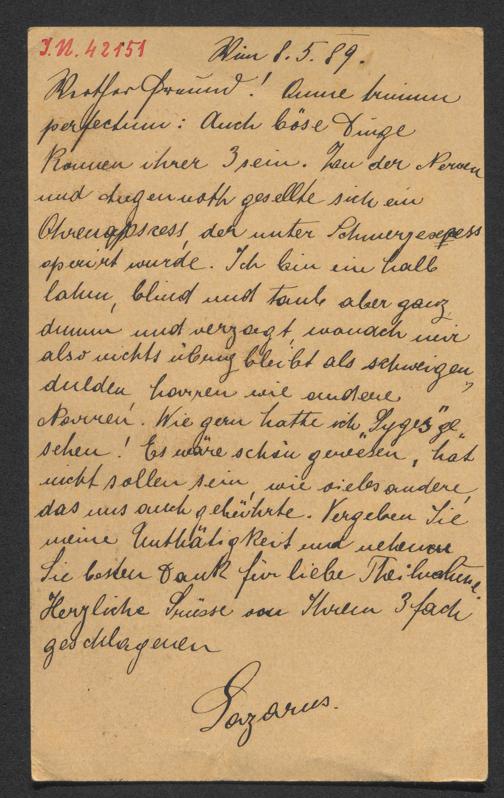 J.N. 42151
Wien 8.5.89.
Werther Freund! Omne trinum
perfectum: Auch böse Dinge
können ihrer 3 sein. Zu der Nerven
und Augennoth gesellte sich ein
Ohrenapscess, der unter Schmerzexcess
operirt wurde. Ich bin ein halb
lahm, blind und taub aber ganz
dumm und verzagt, wonach mir
also nichts übrig bleibt als schweigen
dulden, harren wie andere
Narren. Wie gern hätte ich „Gyges" ge
sehen! Es wäre schön gewesen, hat
nicht sollen sein, wie vieles andere,
das uns auch gebührte. Vergeben Sie
meine Unthätigkeit und nehmen
Sie besten Dank für liebe Theilnahme.
Herzliche Grüsse von Ihrem 3fach
geschlagenen
Lazarus.